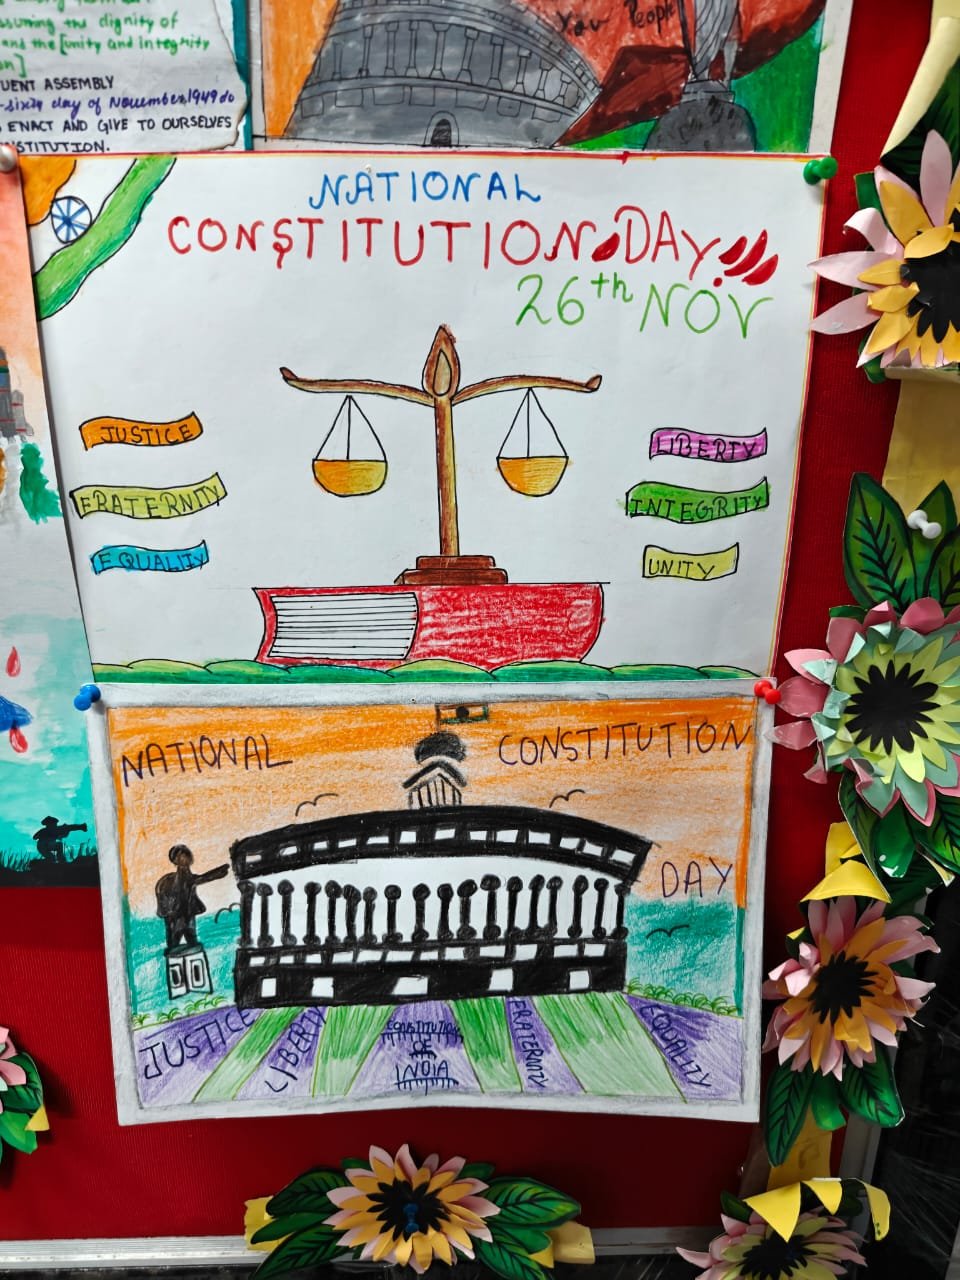 ssuring the dignity of
and the [unity and Integrity
on]
UENT ASSEMBLY
-sixth day of November,1949 do
ENACT AND GIVE TO OURSELVES
NSTITUTION.
You People
NATIONAL
CONSTITUTION DAY
26th NOV
JUSTICE
FRATERNITY
EQUALITY
LIBERTY
INTEGRITY
UNITY
NATIONAL CONSTITUTION
DAY
JUSTICE
LIBERTY
CONSTITUTION
OF
INDIA
FRATERNITY
EQUALITY